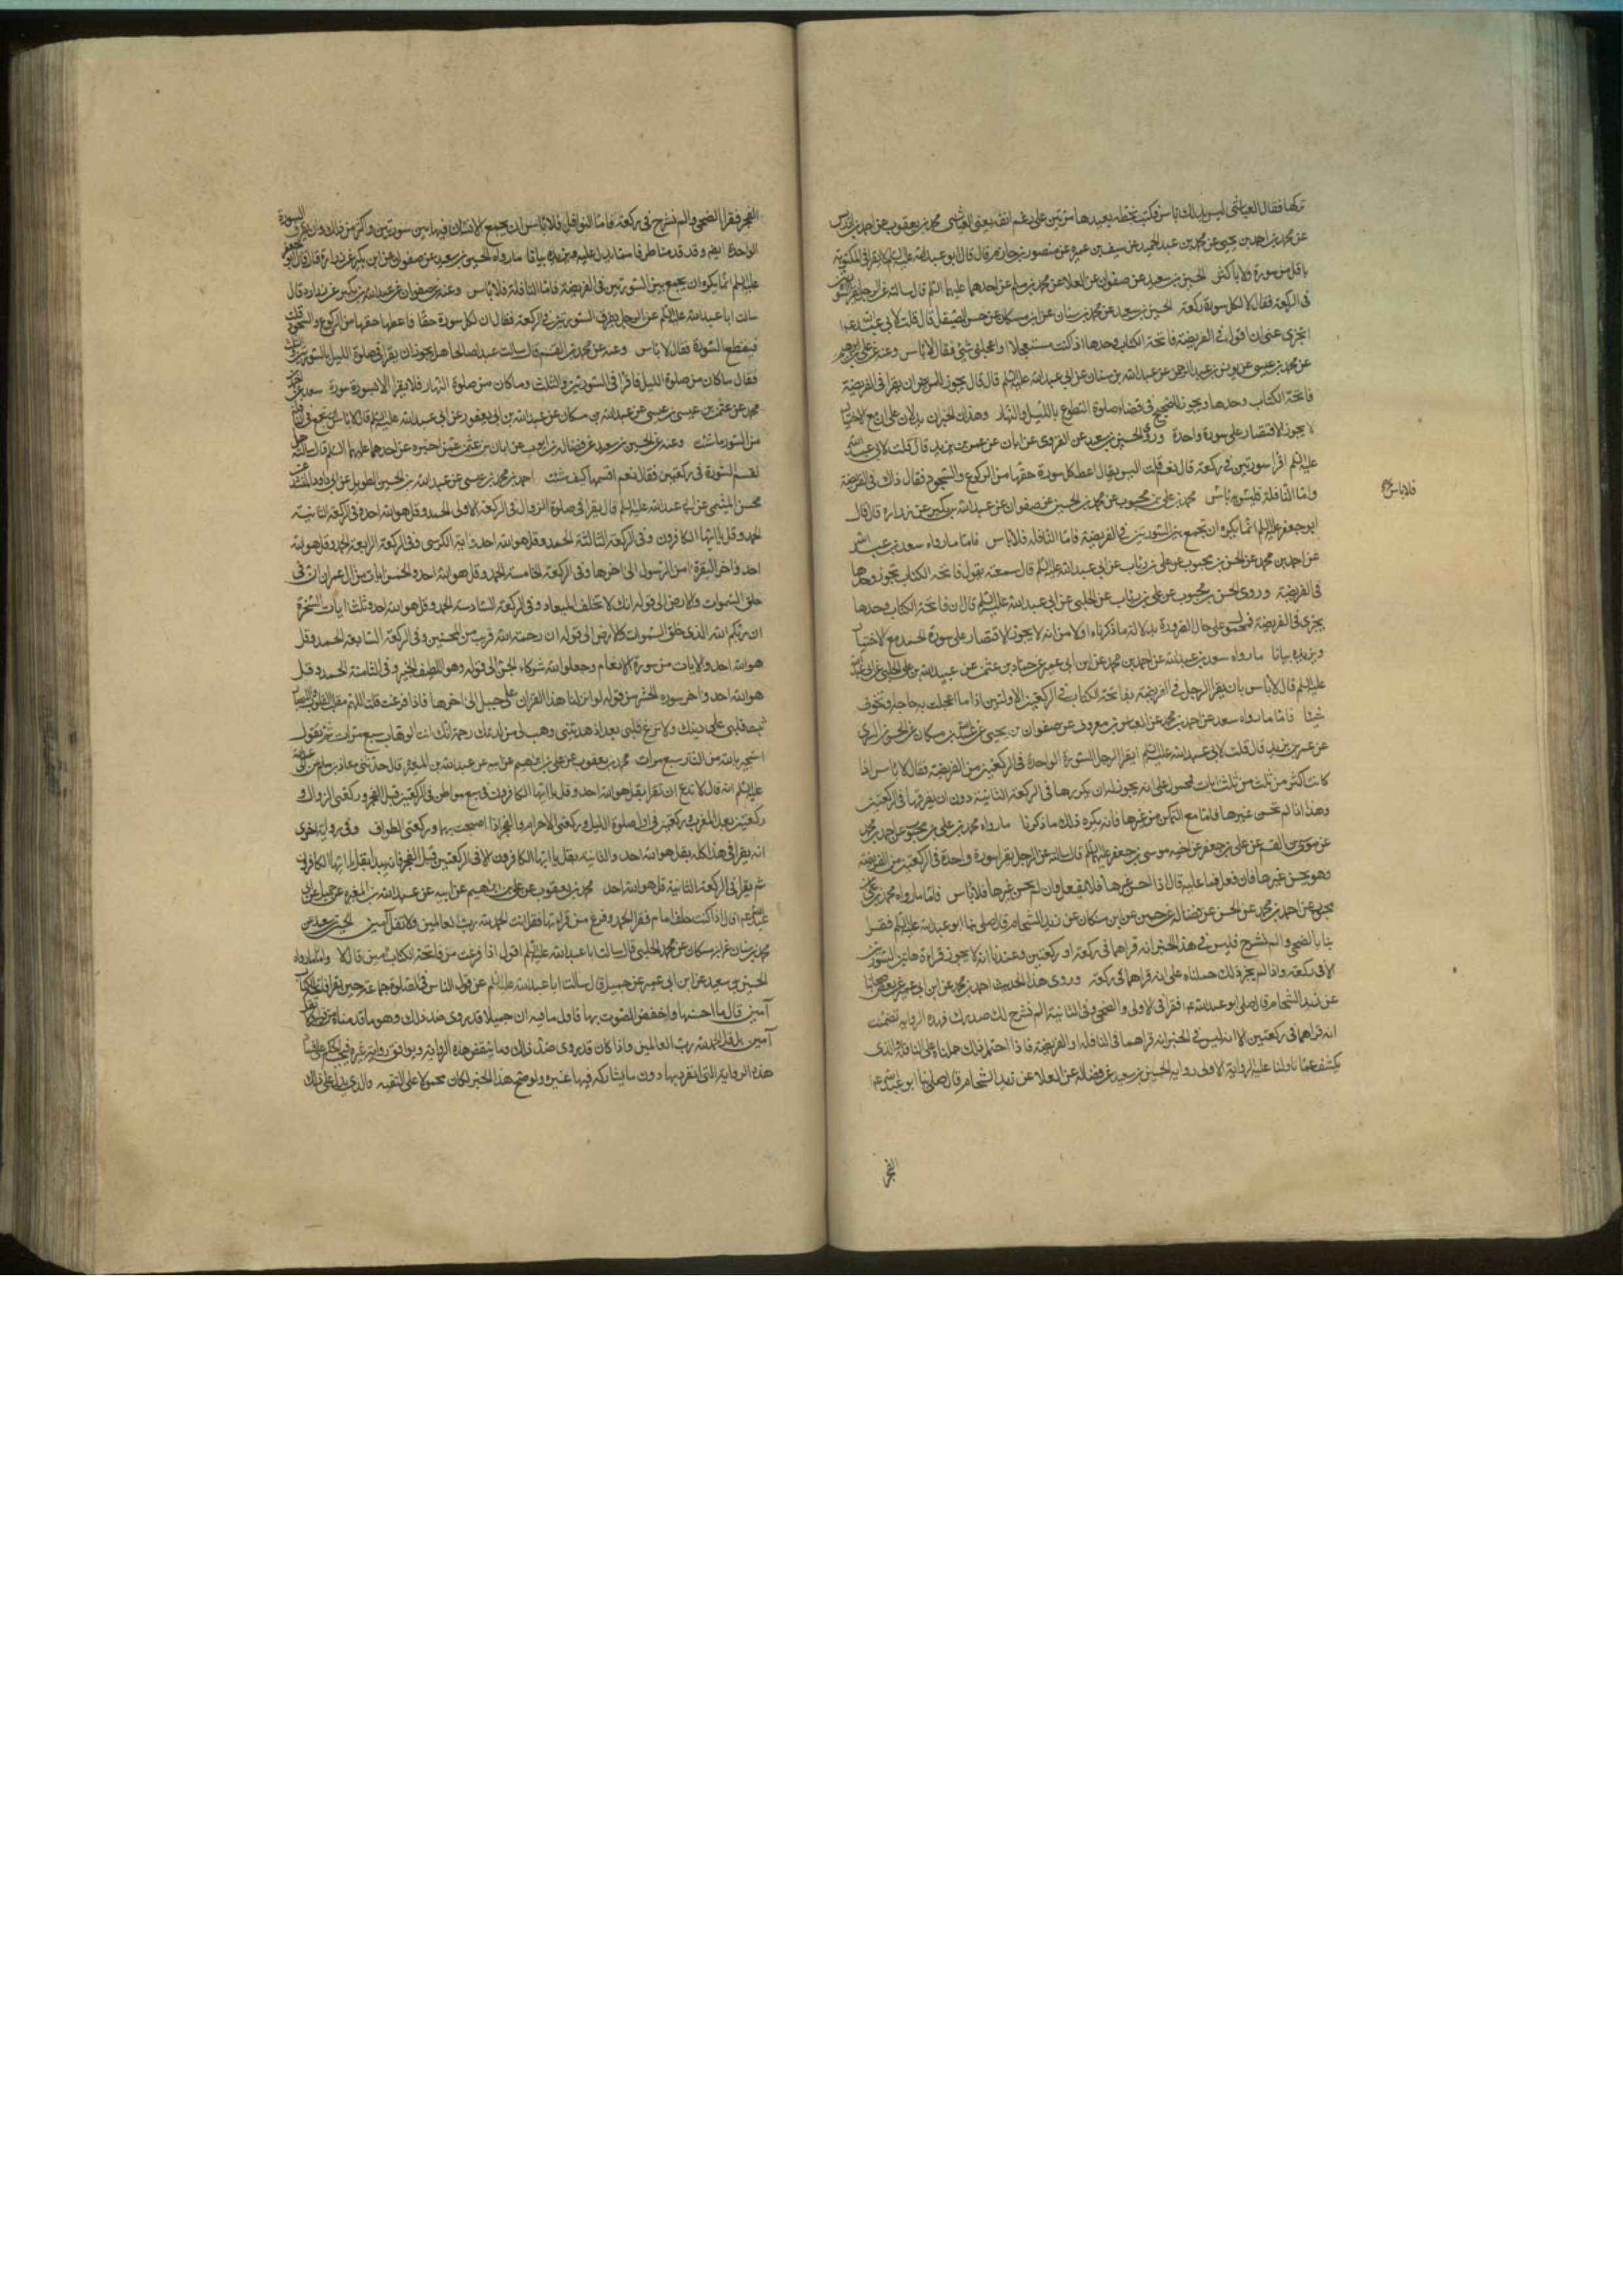 تركها فقال العباسي ليس بذلك باس فكتب بخطه يعيدها مرتين على رغم انفه يعني العباسي محمد بن يعقوب عن احمد بن ادريس
عن محمد بن احمد بن يحيى عن محمد بن عبد الحميد عن سيف بن عميره عن منصور بن حازم قال قال ابو عبد الله عليه السلم لا يقرا في المكتوبة
باقل من سورة ولا باكثر الحسين بن سعيد عن صفوان عن العلا عن محمد بن مسلم عن احدهما عليهما السلم قال سالته عن الرجل يقرا السورتين
في الركعة فقال لا لكل سورة ركعة الحسين بن سعيد عن محمد بن سنان عن ابن مسكان عن حسن الصيقل قال قلت لابي عبد الله ع
ايجزي عني ان اقول في الفريضة فاتحة الكتاب وحدها اذا كنت مستعجلا او اعجلني شئ فقال لا باس وعنه عن علي بن ابرهيم
عن محمد بن عيسى عن يونس بن عبد الرحمن عن عبد الله بن سنان عن ابي عبد الله عليه السلم قال قال يجوز للمريض ان يقرا في الفريضة
فاتحة الكتاب وحدها ويجوز للصحيح في قضاء صلوة التطوع بالليل والنهار وهذان الخبران يدلان على ان مع الاختيار
لا يجوز الاقتصار على سورة واحدة وروى الحسين بن سعيد عن القروي عن ابان عن عمر بن يزيد قال قلت لابي عبد الله
عليه السلم اقرا سورتين في ركعة قال نعم قلت اليس يقال اعط كل سورة حقها من الركوع والسجود فقال ذاك في الفريضة
واما النافلة فليس به باس محمد بن علي بن محبوب عن محمد بن الحسين عن صفوان عن عبد الله بن بكير عن زراره قال قال
ابو جعفر عليه السلم انما يكره ان تجمع بين السورتين في الفريضة فاما النافلة فلا باس فاما ما رواه سعد بن عبد الله
عن احمد بن محمد عن الحسن بن محبوب عن علي بن رئاب عن ابي عبد الله عليه السلم قال سمعته يقول فاتحة الكتاب تجوز وحدها
في الفريضة وروى الحسن بن محبوب عن علي بن رئاب عن الحلبي عن ابي عبد الله عليه السلم قال ان فاتحة الكتاب وحدها
يجزي في الفريضة فمحمول على حال الضرورة بدلالة ما ذكرناه اولا من انه لا يجوز الاقتصار على سورة الحمد مع الاختيار
ويزيده بيانا ما رواه سعد بن عبد الله عن احمد بن محمد عن ابن ابي عمير عن حماد بن عثمن عن عبيد الله بن علي الحلبي عن ابي عبد الله
عليه السلم قال لا باس بان يقرا الرجل في الفريضة بفاتحة الكتاب في الركعتين الاولتين اذا ما اعجلت به حاجة او تخوف
شيئا فاما ما رواه سعد عن احمد بن محمد عن العباس بن معروف عن صفوان بن يحيى عن عبد الله بن مسكان عن الحسن بن السري
عن عمر بن يزيد قال قلت لابي عبد الله عليه السلم ايقرا الرجل السورة الواحدة في الركعتين من الفريضة فقال لا باس اذا
كانت اكثر من ثلث ايات فمحمول على انه يجوز له ان يكررها في الركعة الثانية دون ان يفرقها في الركعتين
وهذا اذا لم يحسن غيرها فاما مع التمكن من غيرها فانه يكره ذلك ما ذكرنا ما رواه محمد بن علي بن محبوب عن احمد بن محمد
عن موسى بن القسم عن علي بن جعفر عن اخيه موسى بن جعفر عليهما السلم قال سالته عن الرجل يقرا سورة واحدة في الركعتين من الفريضة
وهو يحسن غيرها فان فعل فما عليه قال اذا احسن غيرها فلا يفعل وان لم يحسن غيرها فلا باس فاما ما رواه محمد بن علي بن
محبوب عن احمد بن محمد عن الحسن عن فضاله عن حسين عن ابن مسكان عن زيد الشحام قال صلى بنا ابو عبد الله عليه السلم فقرا
بنا بالضحى والم نشرح فليس في هذا الخبر انه قراهما في ركعة او ركعتين وعندنا انه لا يجوز قراءة هاتين السورتين
الا في ركعة واذا لم يجز ذلك حملناه على انه قراهما في ركعة وروى هذا الحديث احمد بن محمد عن ابن ابي عمير عن بعض اصحابنا
عن زيد الشحام قال صلى ابو عبد الله ع فقرا في الاولى والضحى وفي الثانية الم نشرح لك صدرك فهذه الرواية تضمنت
انه قراهما في ركعتين الا انه ليس في الخبر انه قراهما في النافلة او الفريضة فاذا احتمل ذلك حملناه على النافلة والذي
يكشف عما تاولنا عليه الرواية الاولى رواية الحسين بن سعيد عن فضاله عن العلا عن زيد الشحام قال صلى بنا ابو عبد الله ع
الفجر
فلا باس
الفجر فقرا الضحى والم نشرح في ركعة فاما النوافل فلا باس ان يجمع الانسان فيها بين سورتين واكثر من ذلك وان يفرق السورة
الواحدة ايضا وقد قدمنا طرفا مما يدل عليه ويزيده بيانا ما رواه الحسين بن سعيد عن صفوان عن ابن بكير عن زراره قال قال ابو جعفر
عليه السلم انما يكره ان يجمع بين السورتين في الفريضة فاما النافلة فلا باس وعنه عن صفوان عن عبد الله بن بكير عن زراره قال
سالت ابا عبد الله عليه السلم عن الرجل يقرن السورتين في الركعة فقال ان لكل سورة حقا فاعطها حقها من الركوع والسجود قلت
فيقطع السورة فقال لا باس وعنه عن محمد بن القسم قال سالت عبدا صالحا هل يجوز ان يقرا في صلوة الليل بالسورتين والثلث
فقال ما كان من صلوة الليل فاقرا في السورتين والثلث وما كان من صلوة النهار فلا يقرا الا بسورة سورة سعد عن احمد بن
محمد عن عثمن بن عيسى عن عبد الله بن مسكان عن عبد الله بن ابي يعفور عن ابي عبد الله عليه السلم قال لا باس ان تجمع في النافلة
من السور ما شئت وعنه عن الحسين بن سعيد عن فضاله بن ايوب عن ابان بن عثمن عمن اخبره عن احدهما عليهما السلم قال سالته هل
تقسم السورة في ركعتين فقال نعم اقسمها كيف شئت احمد بن محمد بن عيسى عن عبد الله بن الحسين الطويل عن ابي داود المنشد عن
محسن الميثمي عن ابي عبد الله عليه السلم قال يقرا في صلوة الزوال في الركعة الاولى الحمد وقل هو الله احد وفي الركعة الثانية
الحمد وقل يا ايها الكافرون وفي الركعة الثالثة الحمد وقل هو الله احد واية الكرسي وفي الركعة الرابعة الحمد وقل هو الله
احد واخر البقرة امن الرسول الى اخرها وفي الركعة الخامسة الحمد وقل هو الله احد والخمس ايات من ال عمران ان في
خلق السموات والارض الى قوله انك لا تخلف الميعاد وفي الركعة السادسة الحمد وقل هو الله احد وثلث ايات السخرة
ان ربكم الله الذي خلق السموات والارض الى قوله ان رحمت الله قريب من المحسنين وفي الركعة السابعة الحمد وقل
هو الله احد والايات من سورة الانعام وجعلوا لله شركاء الجن الى قوله وهو اللطيف الخبير وفي الثامنة الحمد وقل
هو الله احد واخر سوره الحشر من قوله لو انزلنا هذا القران على جبل الى اخرها فاذا فرغت قلت اللهم مقلب القلوب والابصار
ثبت قلبي على دينك ولا تزغ قلبي بعد اذ هديتني وهب لي من لدنك رحمة انك انت الوهاب سبع مرات ثم تقول
استجير بالله من النار سبع مرات محمد بن يعقوب عن علي بن ابرهيم عن ابيه عن عبد الله بن المغيره قال حدثني معاذ بن مسلم عن ابي عبد الله
عليه السلم انه قال لا تدع ان تقرا بقل هو الله احد وقل يا ايها الكافرون في سبع مواطن في الركعتين قبل الفجر وركعتي الزوال و
ركعتين بعد المغرب وركعتين في اول صلوة الليل وركعتي الاحرام والفجر اذا اصبحت بها وركعتي الطواف وفي رواية اخرى
انه يقرا في هذا كله بقل هو الله احد والثانية بقل يا ايها الكافرون الا في الركعتين قبل الفجر فانه يبدا بقل يا ايها الكافرون
ثم يقرا في الركعة الثانية قل هو الله احد محمد بن يعقوب عن علي بن ابرهيم عن ابيه عن عبد الله بن المغيره عن جميل عن ابي
عبد الله ع قال اذا كنت خلف امام فقرا الحمد وفرغ من قراءتها فقل انت الحمد لله رب العالمين ولا تقل آمين الحسين بن سعيد عن
محمد بن سنان عن ابن مسكان عن محمد الحلبي قال سالت ابا عبد الله عليه السلم اقول اذا فرغت من فاتحة الكتاب آمين قال لا واما ما رواه
الحسين بن سعيد عن ابن ابي عمير عن جميل قال سالت ابا عبد الله عليه السلم عن قول الناس في الصلوة جماعة حين يقرا فاتحة الكتاب
آمين قال ما احسنها واخفض الصوت بها فاول ما فيه ان جميلا قد روى ضد ذلك وهو ما قدمناه من قوله لا تقل
آمين بل قل الحمد لله رب العالمين واذا كان قد روى ضد ذلك وما ينقض هذه الرواية ويوافق رواية غيره فيجب
هذه الرواية التي انفرد بها دون ما يشاركه فيها غيره ولو صح هذا الخبر لكان محمولا على التقية والذي يدل على ذلك